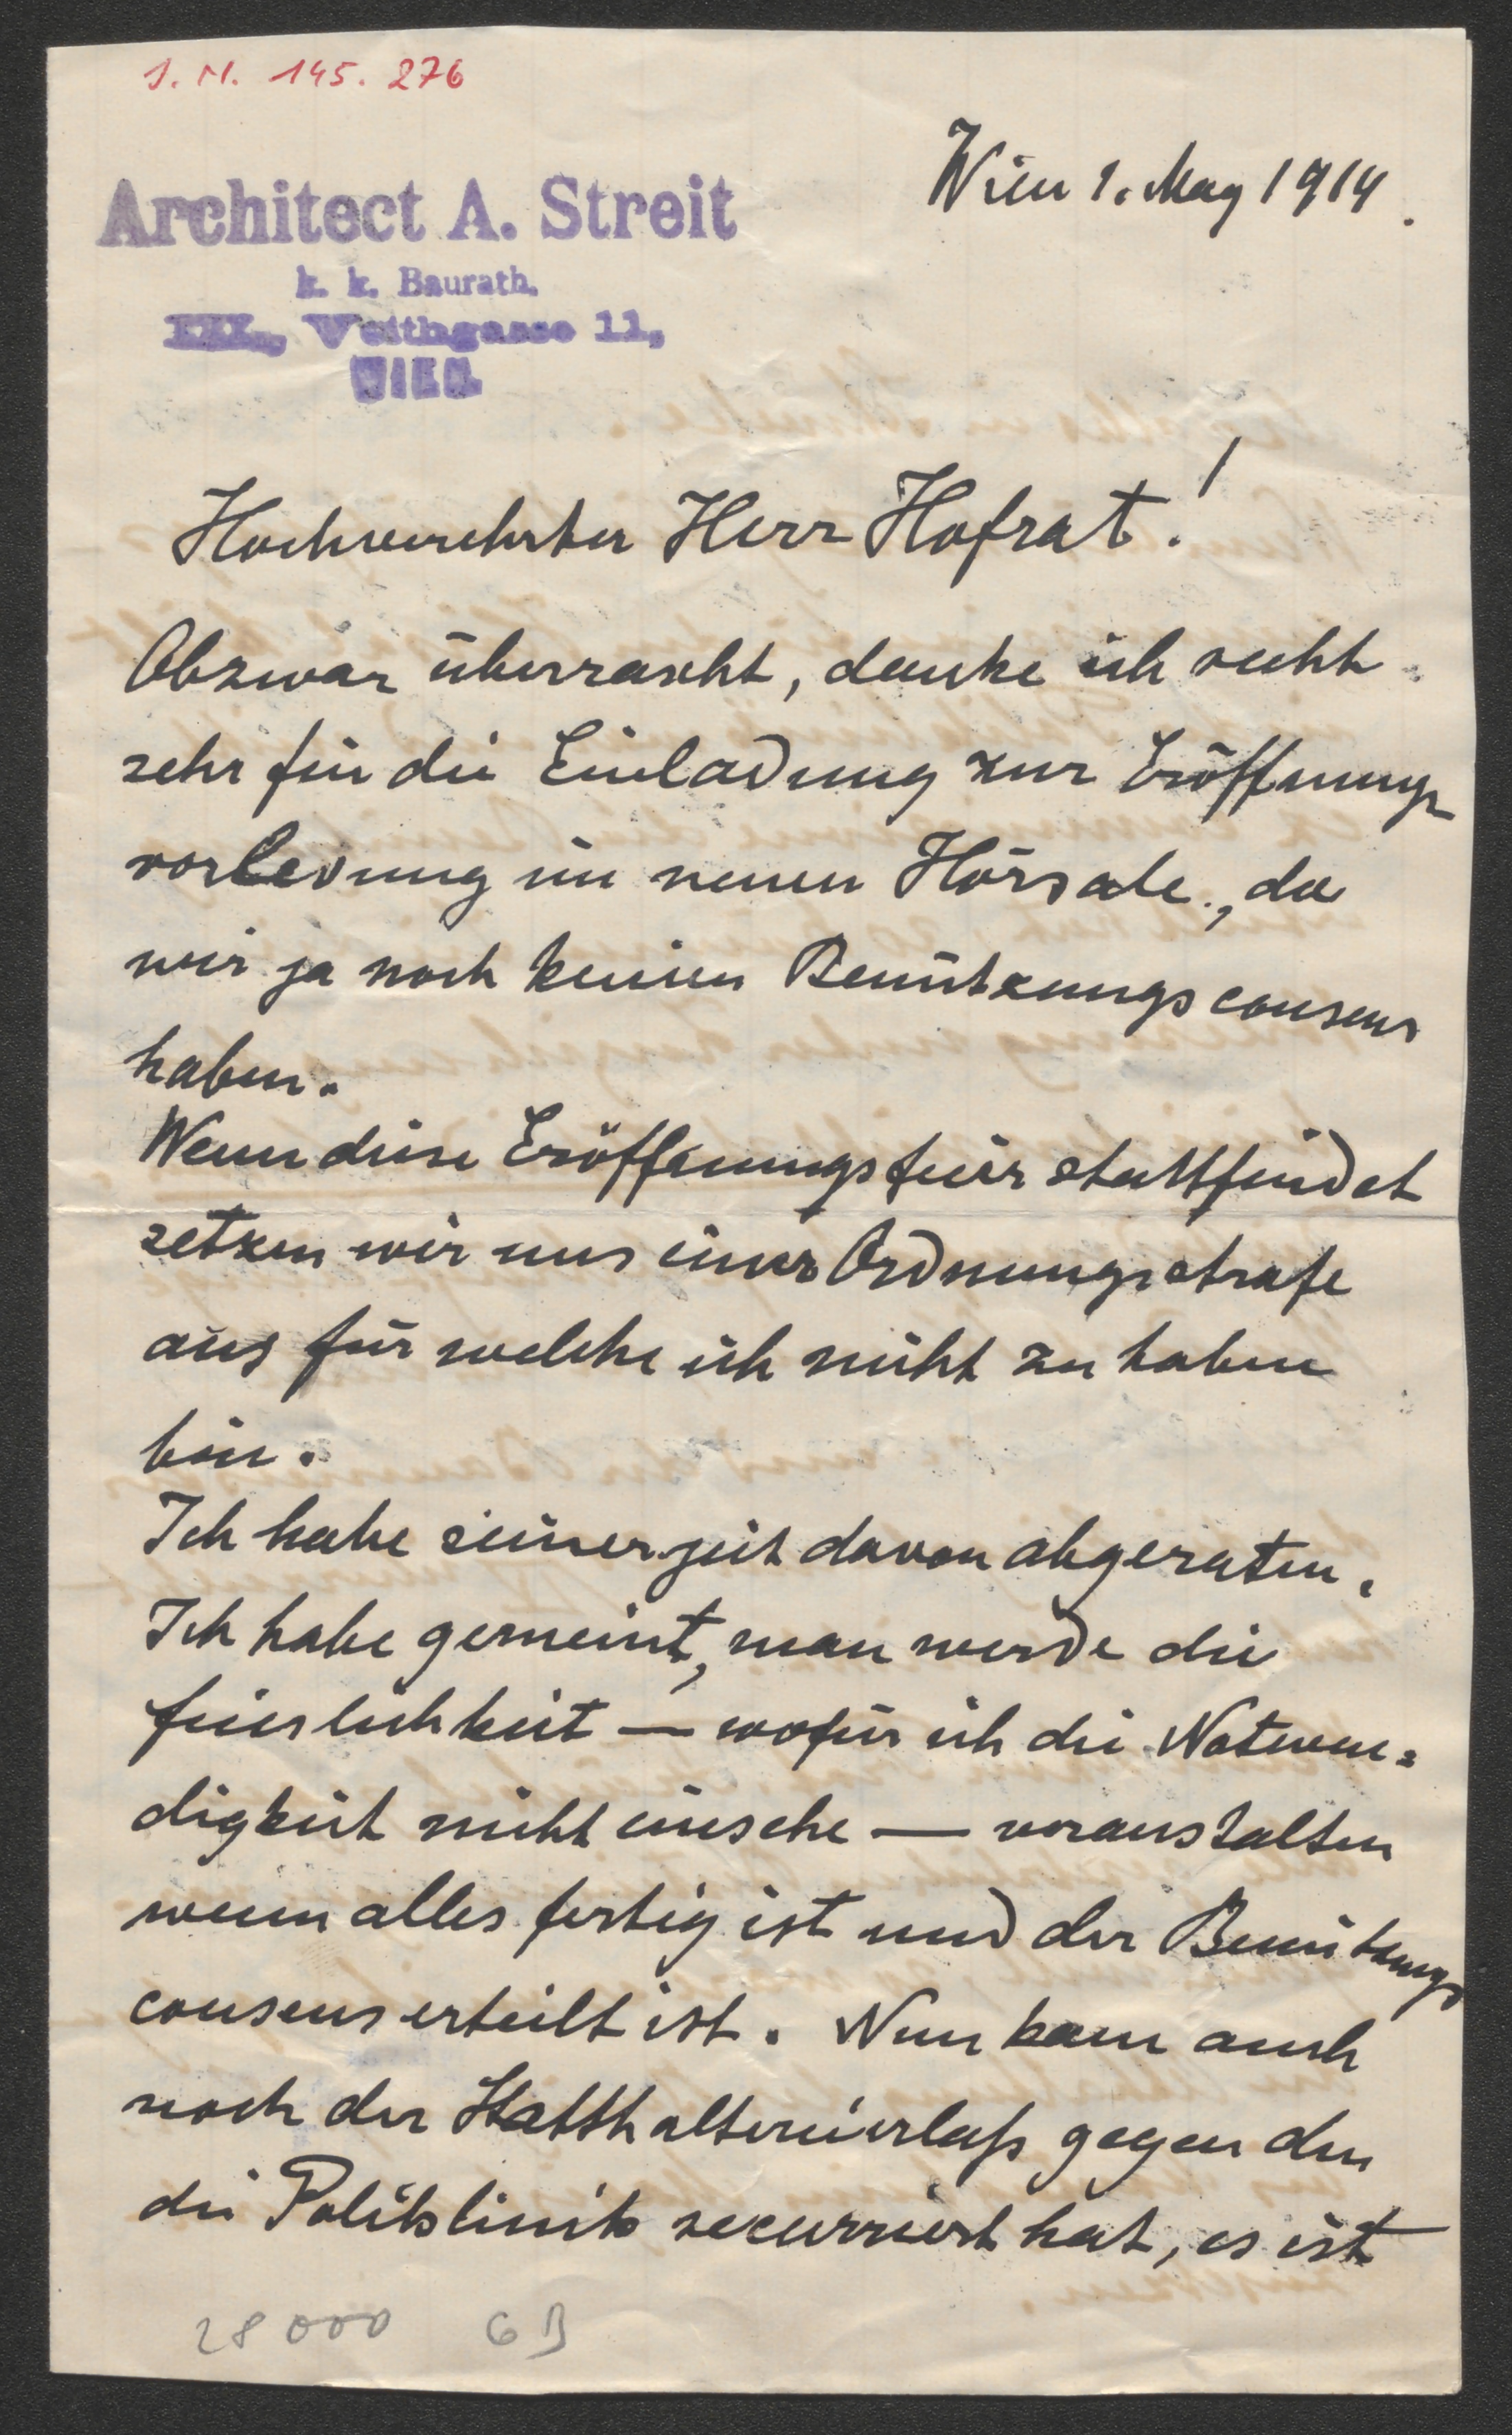 J. N. 145.276
Wien 1. May 1914.
Architect A. Streit
k. k. Baurath.
III., Veithgasse 11,
WIEN.
Hochverehrter Herr Hofrat!
Obzwar überrascht, danke ich recht
sehr für die Einladung zur Eröffnungs
vorlesung im neuen Hörsale, da
wir ja noch keinen Benützungsconsens
haben.
Wenn diese Eröffnungsfeier stattfindet
setzen wir uns einer Ordnungsstrafe
aus für welche ich nicht zu haben
bin.
Ich habe seinerzeit davon abgeraten.
Ich habe gemeint, man werde die
feierlichkeit — wofür ich die Notwen=
digkeit nicht einsehe — veranstalten
wenn alles fertig ist und der Benützungs
consens erteilt ist. Nun kam auch
noch der Statthaltereierlaß gegen den
die Poliklinik recurriert hat, es ist
28000 GB